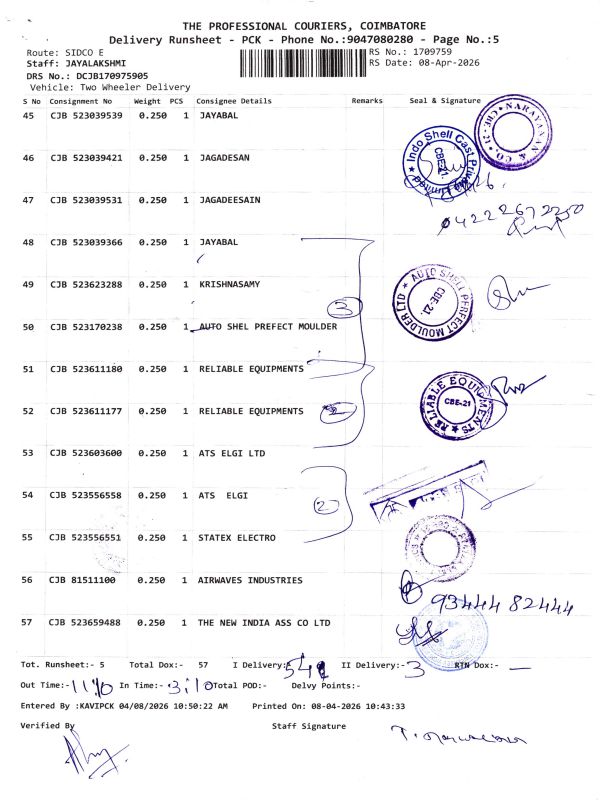 THE PROFESSIONAL COURIERS, COIMBATORE
Delivery Runsheet - PCK - Phone No.:9047080280 - Page No.:5
Route: SIDCO E
RS No.: 1709759
Staff: JAYALAKSHMI
RS Date: 08-Apr-2026
DRS No.: DCJB170975905
Vehicle: Two Wheeler Delivery
S No Consignment No Weight PCS Consignee Details Remarks Seal & Signature
45 CJB 523039539 0.250 1 JAYABAL
NARAYANAN & CO. CBE-21
Indo Shell Cast Private Limited CBE-21.
46 CJB 523039421 0.250 1 JAGADESAN
47 CJB 523039531 0.250 1 JAGADEESAIN
48 CJB 523039366 0.250 1 JAYABAL
49 CJB 523623288 0.250 1 KRISHNASAMY
AUTO SHELL PERFECT MOULDER LTD CBE-21.
3
50 CJB 523170238 0.250 1 AUTO SHEL PREFECT MOULDER
51 CJB 523611180 0.250 1 RELIABLE EQUIPMENTS
RELIABLE EQUIPMENTS CBE-21
52 CJB 523611177 0.250 1 RELIABLE EQUIPMENTS 2
53 CJB 523603600 0.250 1 ATS ELGI LTD
54 CJB 523556558 0.250 1 ATS ELGI 2
55 CJB 523556551 0.250 1 STATEX ELECTRO
56 CJB 81511100 0.250 1 AIRWAVES INDUSTRIES
93444 82444
57 CJB 523659488 0.250 1 THE NEW INDIA ASS CO LTD
Tot. Runsheet:- 5 Total Dox:- 57 I Delivery:- 54 II Delivery:- 3 RTN Dox:- —
Out Time:- 11/10 In Time:- 3/10 Total POD:- Delvy Points:-
Entered By :KAVIPCK 04/08/2026 10:50:22 AM Printed On: 08-04-2026 10:43:33
Verified By Staff Signature